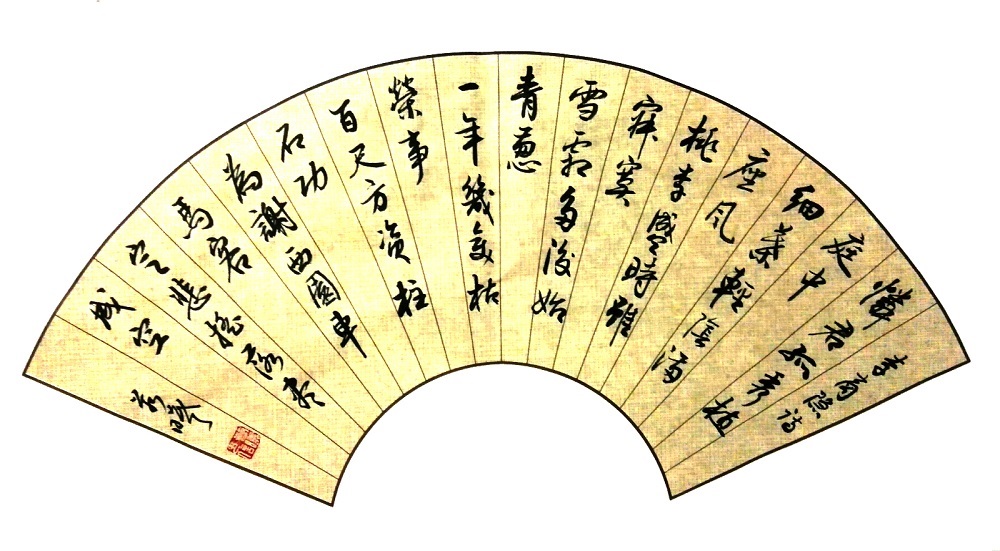 李商隐詩
憐君孤秀植
庭中
細葉輕陰滿
座風
桃李盛時雖
寂寞
雪霜多後始
青葱
一年幾變枯
榮事
百尺方資柱
石功
為謝西園車
馬客
定悲搖落盡
成空